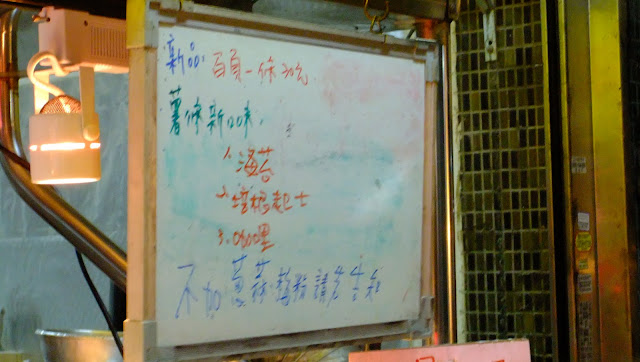 新品: 百頁一條30元
薯條新口味,
1. 海苔
2. 培根起士
3. 咖哩
不加蔥蒜辣粉請先告知